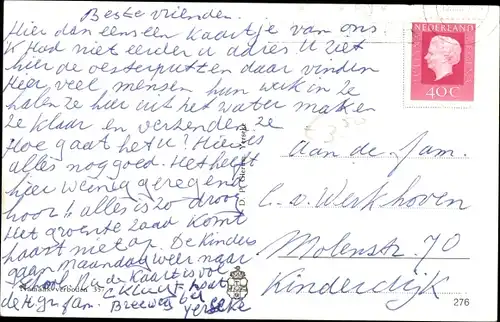 Beste vrienden.
Hier dan eens een kaartje van ons
k Had niet eerder u adres U ziet
hier de oesterputten daar vinden
Hier veel mensen hun werk in ze
halen ze hier uit het water maken
ze klaar en verzenden ze
Hoe gaat het u? Hier is
alles nog goed. Het heeft
hier weinig geregend
hoor t alles is zo droog
Het groente zaad komt
haast niet op. De kinders
gaan Maandag weer naar
de Kaart is vol
de H gr. fam. Breeweg
Yerseke
NEDERLAND
40C
€ 3 50
aan de fam.
C. v. Werkhoven
Molenstr. 70
Kinderdijk
Nadruk verboden
276